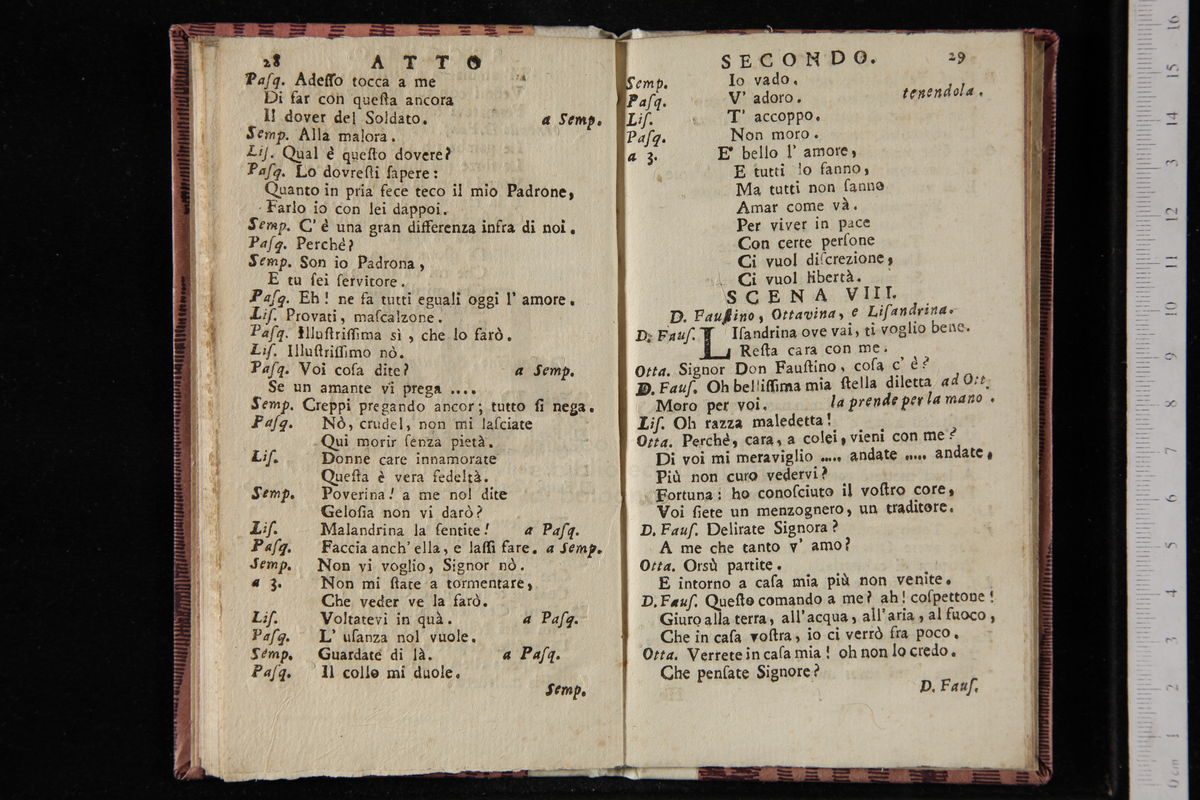 28 ATTO
Paſq. Adeſſo tocca a me
Di far con queſta ancora
Il dover del Soldato. a Semp.
Semp. Alla malora.
Liſ. Qual è queſto dovere?
Paſq. Lo dovreſti ſapere:
Quanto in pria fece teco il mio Padrone,
Farlo io con lei dappoi.
Semp. C' è una gran differenza infra di noi.
Paſq. Perchè?
Semp. Son io Padrona,
E tu ſei ſervitore.
Paſq. Eh! ne fa tutti eguali oggi l' amore.
Liſ. Provati, maſcalzone.
Paſq. Illuſtriſſima sì, che lo farò.
Liſ. Illuſtriſſimo nò.
Paſq. Voi coſa dite? a Semp.
Se un amante vi prega ....
Semp. Creppi pregando ancor; tutto ſi nega.
Paſq. Nò, crudel, non mi laſciate
Qui morir ſenza pietà.
Liſ. Donne care innamorate
Queſta è vera fedeltà.
Semp. Poverina! a me nol dite
Geloſia non vi darò?
Liſ. Malandrina la ſentite! a Paſq.
Paſq. Faccia anch' ella, e laſſi fare. a Semp.
Semp. Non vi voglio, Signor nò.
a 3. Non mi ſtate a tormentare,
Che veder ve la farò.
Liſ. Voltatevi in quà. a Paſq.
Paſq. L' uſanza nol vuole.
Semp. Guardate di là. a Paſq.
Paſq. Il collo mi duole.
Semp.
SECONDO. 29
Semp. Io vado.
Paſq. V' adoro. tenendola.
Liſ. T' accoppo.
Paſq. Non moro.
a 3. E' bello l' amore,
E tutti lo fanno,
Ma tutti non ſanno
Amar come và.
Per viver in pace
Con certe perſone
Ci vuol diſcrezione,
Ci vuol libertà.
SCENA VIII.
D. Fauſtino, Ottavina, e Liſandrina.
D. Fauſ. LIſandrina ove vai, ti voglio bene.
Reſta cara con me.
Otta. Signor Don Fauſtino, coſa c' è?
D. Fauſ. Oh belliſſima mia ſtella diletta ad Ott.
Moro per voi. la prende per la mano.
Liſ. Oh razza maledetta!
Otta. Perchè, cara, a colei, vieni con me?
Di voi mi meraviglio ..... andate ..... andate,
Più non curo vedervi?
Fortuna: ho conoſciuto il voſtro core,
Voi ſiete un menzognero, un traditore.
D. Fauſ. Delirate Signora?
A me che tanto v' amo?
Otta. Orsù partite.
E intorno a caſa mia più non venite.
D. Fauſ. Queſto comando a me? ah! coſpettone!
Giuro alla terra, all' acqua, all' aria, al fuoco,
Che in caſa voſtra, io ci verrò fra poco.
Otta. Verrete in caſa mia! oh non lo credo.
Che penſate Signore?
D. Fauſ.
0 cm 1 2 3 4 5 6 7 8 9 10 11 12 13 14 15 16